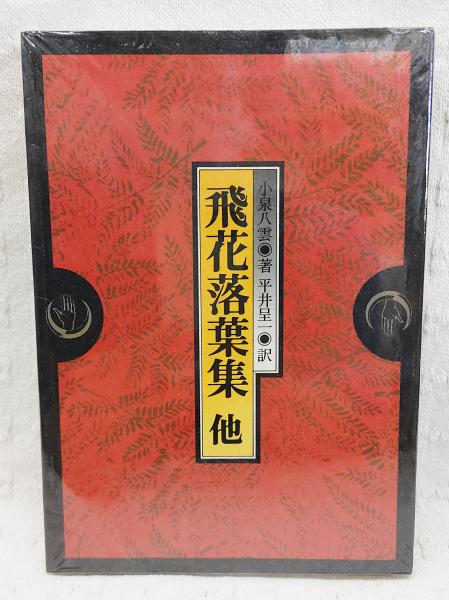 小泉八雲◉著 平井呈一◉訳
飛花落葉集 他